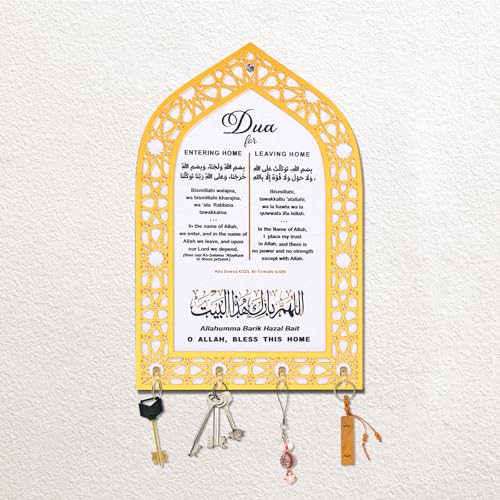 Dua
for
ENTERING HOME
بِسْمِ اللهِ وَلَجْنَا، وَبِسْمِ اللهِ
خَرَجْنَا، وَعَلَى اللهِ رَبِّنَا تَوَكَّلْنَا
Bismillahi walajna,
wa bismillahi kharajna,
wa 'ala Rabbina
tawakkalna.
In the name of Allah,
we enter, and in the name of
Allah we leave, and upon
our Lord we depend.
(then say As-Salamo 'Alaykum
to those present)
LEAVING HOME
بِسْمِ اللهِ، تَوَكَّلْتُ عَلَى اللهِ
، وَلَا حَوْلَ وَلَا قُوَّةَ إِلَّا بِاللهِ
Bismillahi,
tawakkaltu 'alallahi,
wa la hawla wa la
quwwata illa billah.
In the Name of Allah,
I place my trust
in Allah, and there is
no power and no strength
except with Allah.
Abu Dawud 4/325, At-Tirmidhi 5/490
اللهم بارك هذا البيت
Allahumma Barik Hazal Bait
O ALLAH, BLESS THIS HOME